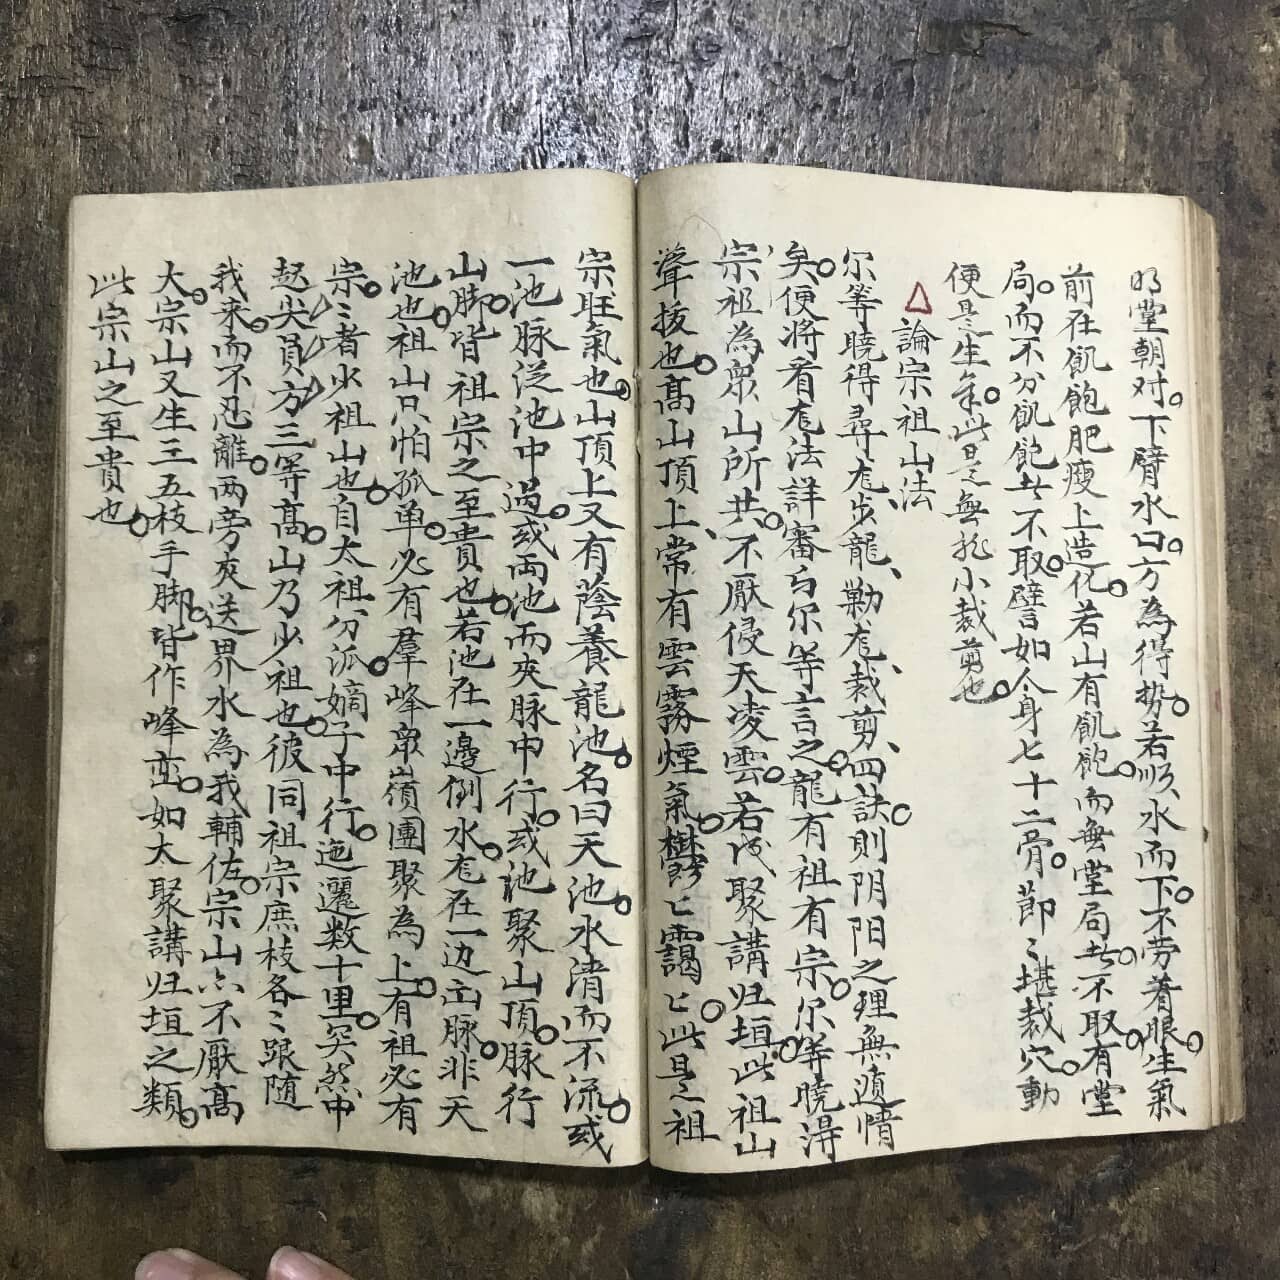 明堂朝对。下臂水口。方為得势。若順水而下。不劳着眼。生氣
前在飢飽肥瘦上造化。若山有飢飽。而無堂局者。不取。有堂
局。而不分飢飽者不取。譬如人身七十二骨。節〻堪裁穴。動
便是生氣。此是無形小裁剪也。
△論宗祖山法
尔等曉得尋龙步龍、勒龙、裁剪、四訣。則阴阳之理無遺情
矣。便將看龙法詳審与尔等言之。龍有祖有宗。尔等曉得
宗祖為眾山所共。不厭侵天凌雲。若成聚講归垣。此祖山
聳拔也。高山頂上、常有雲霧煙氣。欝〻靄〻。此是祖
宗旺氣也。山頂上又有蔭養龍池。名曰天池。水清而不流。或
一池脉從池中過。或両池而夾脉中行。或池聚山頂。脉行
山脚。皆祖宗之至貴也。若池在一邊倒水。龙在一边出脉。非天
池也。祖山只怕孤单。必有羣峰眾嶺團聚為上。有祖必有
宗。〻者少祖山也。自太祖分派。嫡子中行。迤邐数十里。突然中
起尖員方三等高。山乃少祖也。彼同祖宗庶枝各〻跟随
我来。而不忍離。両旁夾送界水為我輔佐。宗山亦不厭高
大。宗山又生三五枝手脚。皆作峰峦。如大聚講归垣之類。
此宗山之至貴也。